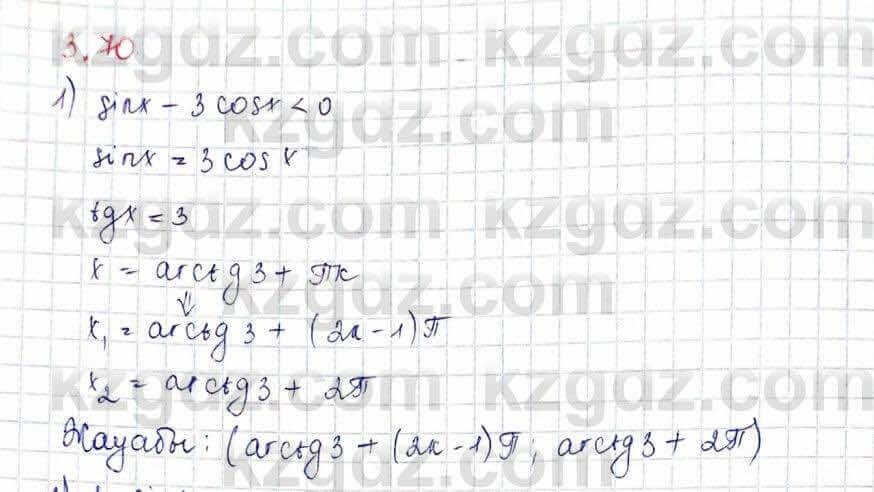 3.70
1) sinx - 3cosx < 0
sinx = 3cosx
tgx = 3
x = arctg3 + πk
⇓
x₁ = arctg3 + (2k-1)π
x₂ = arctg3 + 2π
Жауабы: (arctg3 + (2k-1)π; arctg3 + 2π)
kzgdz.com kzgdz.com
kzgdz.com
kzgdz.com kzgdz.com
kzgdz.com
kzgdz.com kzgdz.com